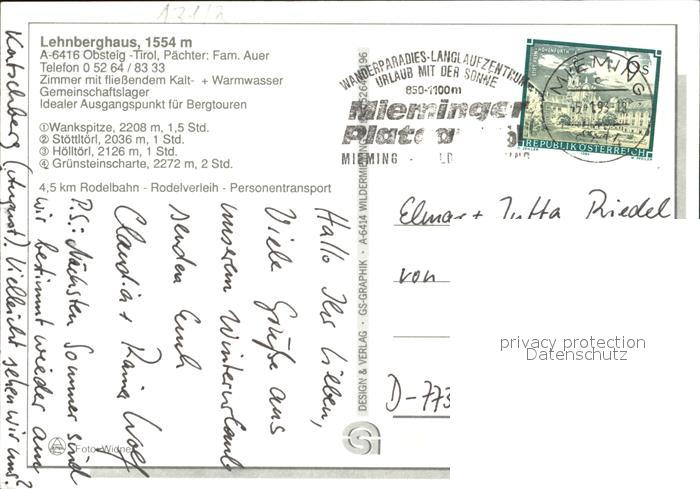 Lehnberghaus, 1554 m
A-6416 Obsteig -Tirol, Pächter: Fam. Auer
Telefon 0 52 64 / 83 33
Zimmer mit fließendem Kalt- + Warmwasser
Gemeinschaftslager
Idealer Ausgangspunkt für Bergtouren
①Wankspitze, 2208 m, 1,5 Std.
② Stöttltörl, 2036 m, 1 Std.
③ Hölltörl, 2126 m, 1 Std.
④ Grünsteinscharte, 2272 m, 2 Std.
4,5 km Rodelbahn - Rodelverleih - Personentransport
Hallo Ihr Lieben,
Viele Grüße aus
unserem Winterurlaub
senden Euch
Claudia + Rainer Wolf
P.S.: Nächsten Sommer sind
wir bestimmt wieder am
Katschberg (August). Vielleicht sehen wir uns?
Foto-Widner
DESIGN & VERLAG · GS-GRAPHIK · A-6414 WILDERMIEMING
WANDERPARADIES-LANGLAUFZENTRUM
URLAUB MIT DER SONNE
850-1100m
Mieminger
MIEMING
6s
REPUBLIK ÖSTERREICH
MIEMING
Elmar + Jutta Riedel
von
D-773
privacy protection
Datenschutz